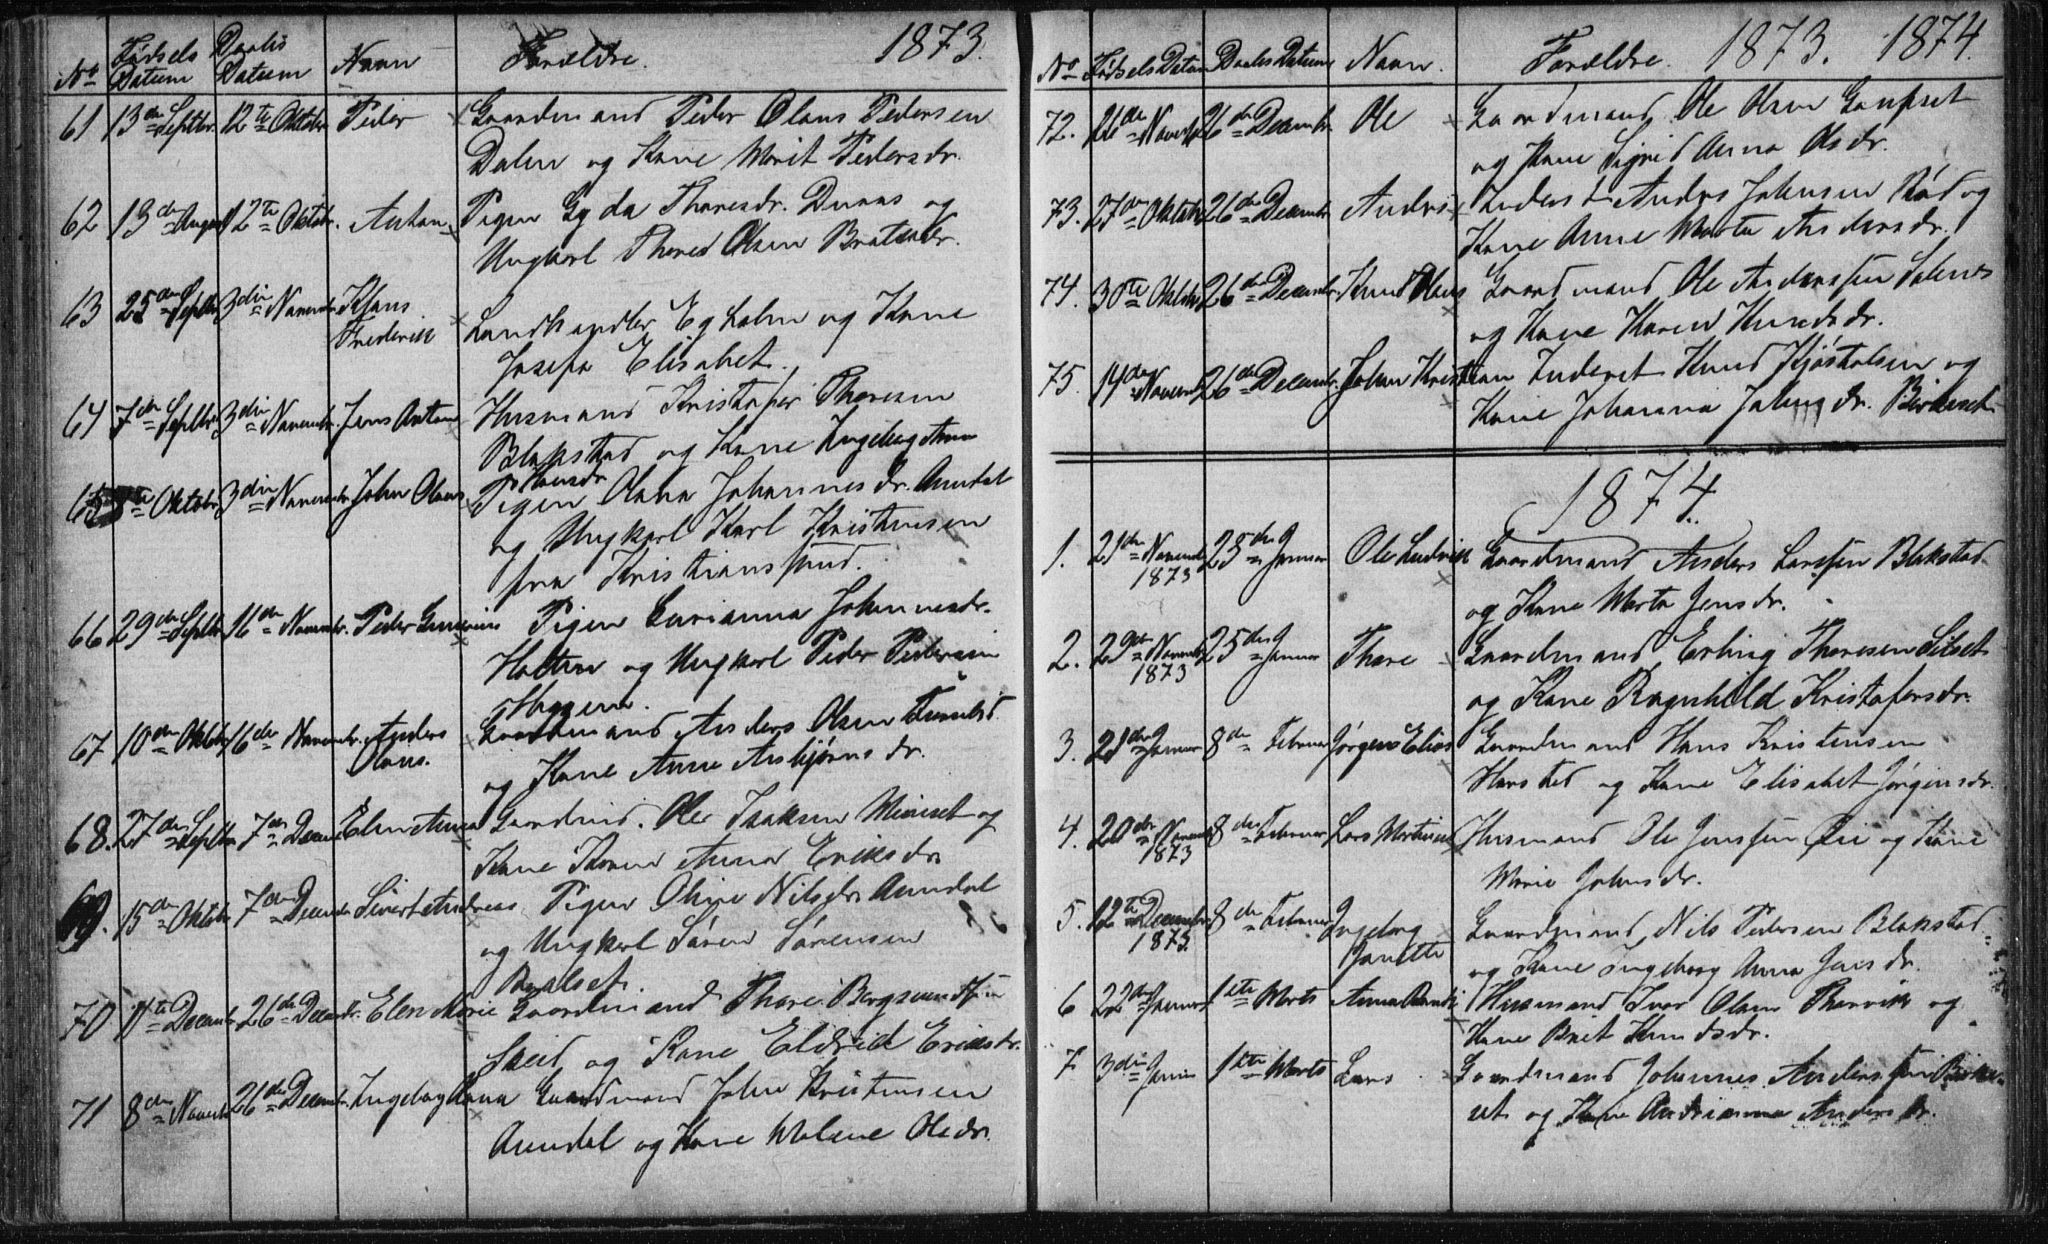 1873.
No Fødsels Datum Daabs Datum Navn Forældre.
61 13de Septbr. 12te Oktober Peder Gaardmand Peder Olaus Pedersen
Dalen og Kone Marit Pedersdr.
62 13de August 12te Oktobr. Anton Pigen Gyda Thoresdr. og
Ungkarl Thores Olsen
63 25de Septbr 3die Novembr. Hans Frederik Landhandler Eg og Kone
Josefa Elisabet.
64 7de Septbr. 3die Novembr. Jens Anton Husmand Kristofer Thoresen
Blakstad og Kone Ingeborg Anna
Hansdr.
65 8te Oktobr 3die Novembr. John Olaus Pigen Olava Johannesdr. Aandal
og Ungkarl Karl Kristensen
fra Kristianssund.
66 29de Septbr. 16de Novembr. Peder Pigen Johannesdr.
Holten og Ungkarl Peder Pedersen
67 10de Oktobr 16de Novembr. Anders Olaus. Gaardmand Anders Olsen
og Kone Anne Asbjørnsdr.
68. 27de Septbr 7de Decem Elen Anna Gaardmd. Ole Isaksen og
Kone Karen Anna Eriksdr
69. 15de Oktobr 7de Decembr Sivert Andreas Pigen Oline Nilsdr. Aandal
og Ungkarl Søren Sørensen
70 11te Decembr 26de Decembr. Elen Marie Gaardmand Thore
og Kone Eldrid Eriksdr.
71 8de Novembr 26de Decembr. Ingeborg Anna Gaardmand John Kristensen
Aandal og Kone Malene Olsdr.
1873. 1874.
No Fødsels Datum Daabs Datum Navn. Forældre.
72. 26de Novembr 26de Decembr. Ole Gaardmand Ole Olsen Gaupset
og Kone Sigrid Anna Olsdr.
73. 27de Oktobr 26de Decembr. Anders Inderst Anders Johnsen Rød og
Kone Anne Marta Andersdr.
74. 30te Oktobr 26de Decembr. Knud Olaus Gaardmand Ole Anderssen Solnes
og Kone Karen Knudsdr.
75. 14de Novembr 26de Decembr. Johan Kristian Inderst Knud Kjøstolsen og
Kone Johanna Johnsdr. Birkeset
1874.
1. 21de Novembr 1873 25de Januar Ole Ludvik Gaardmand Anders Larssen Blakstad
og Kone Marta Jensdr.
2. 29de Novembr 1873 25de Januar Thore Gaardmand Erling Thoresen Silset
og Kone Ragnhild Kristofersdr.
3. 21de Januar 8de Februar Jørgen Elias Gaardmand Hans Kristensen
Harstad og Kone Elisabet Jørgensdr.
4. 20de Novembr 1873 8de Februar Lars Martinus Husmand Ole Jenssen Øie og Kone
Marie Johnsdr.
5. 12te Decembr 1873 8de Februar Ingeborg Janette Gaardmand Nils Pedersen Blakstad
og Kone Ingeborg Anna Jensdr.
6 22de Januar 1ste Marts Anna Husmand Iver Olsen Thorvik og
Kone Brit Knudsdr.
7. 3die Januar 1ste Marts Lars Gaardmand Johannes Anderssen Birke-
set og Kone Andrianna Andersdr.